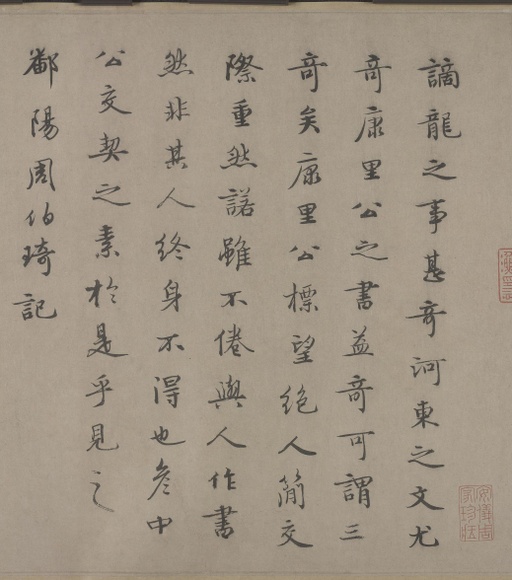 謫龍之事甚奇河東之文尤
奇康里公之書益奇可謂三
奇矣康里公標望絕人簡交
際重然諾雖不倦與人作書
然非其人終身不得也叅中
公交契之素於是乎見之
鄱陽周伯琦記
安儀周
家珍藏